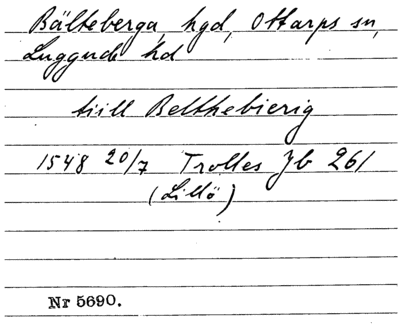 Bälteberga, hgd, Ottarps sn,
Luggude hd
tiill Belthebierig
1548 20/7 Trolles Jb 261
(Lillö)
Nr 5690.